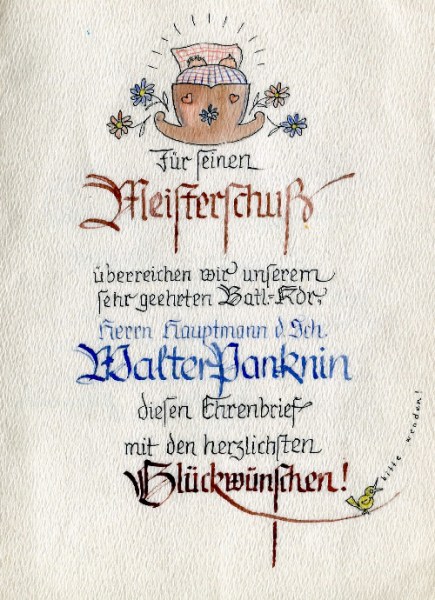 Für seinen
Meisterschuß
überreichen wir unserem
sehr geehrten Batl.-Kdr.
Herrn Hauptmann d. Sch.
Walter Panknin
diesen Ehrenbrief
mit den herzlichsten
Glückwünschen!
bitte wenden!